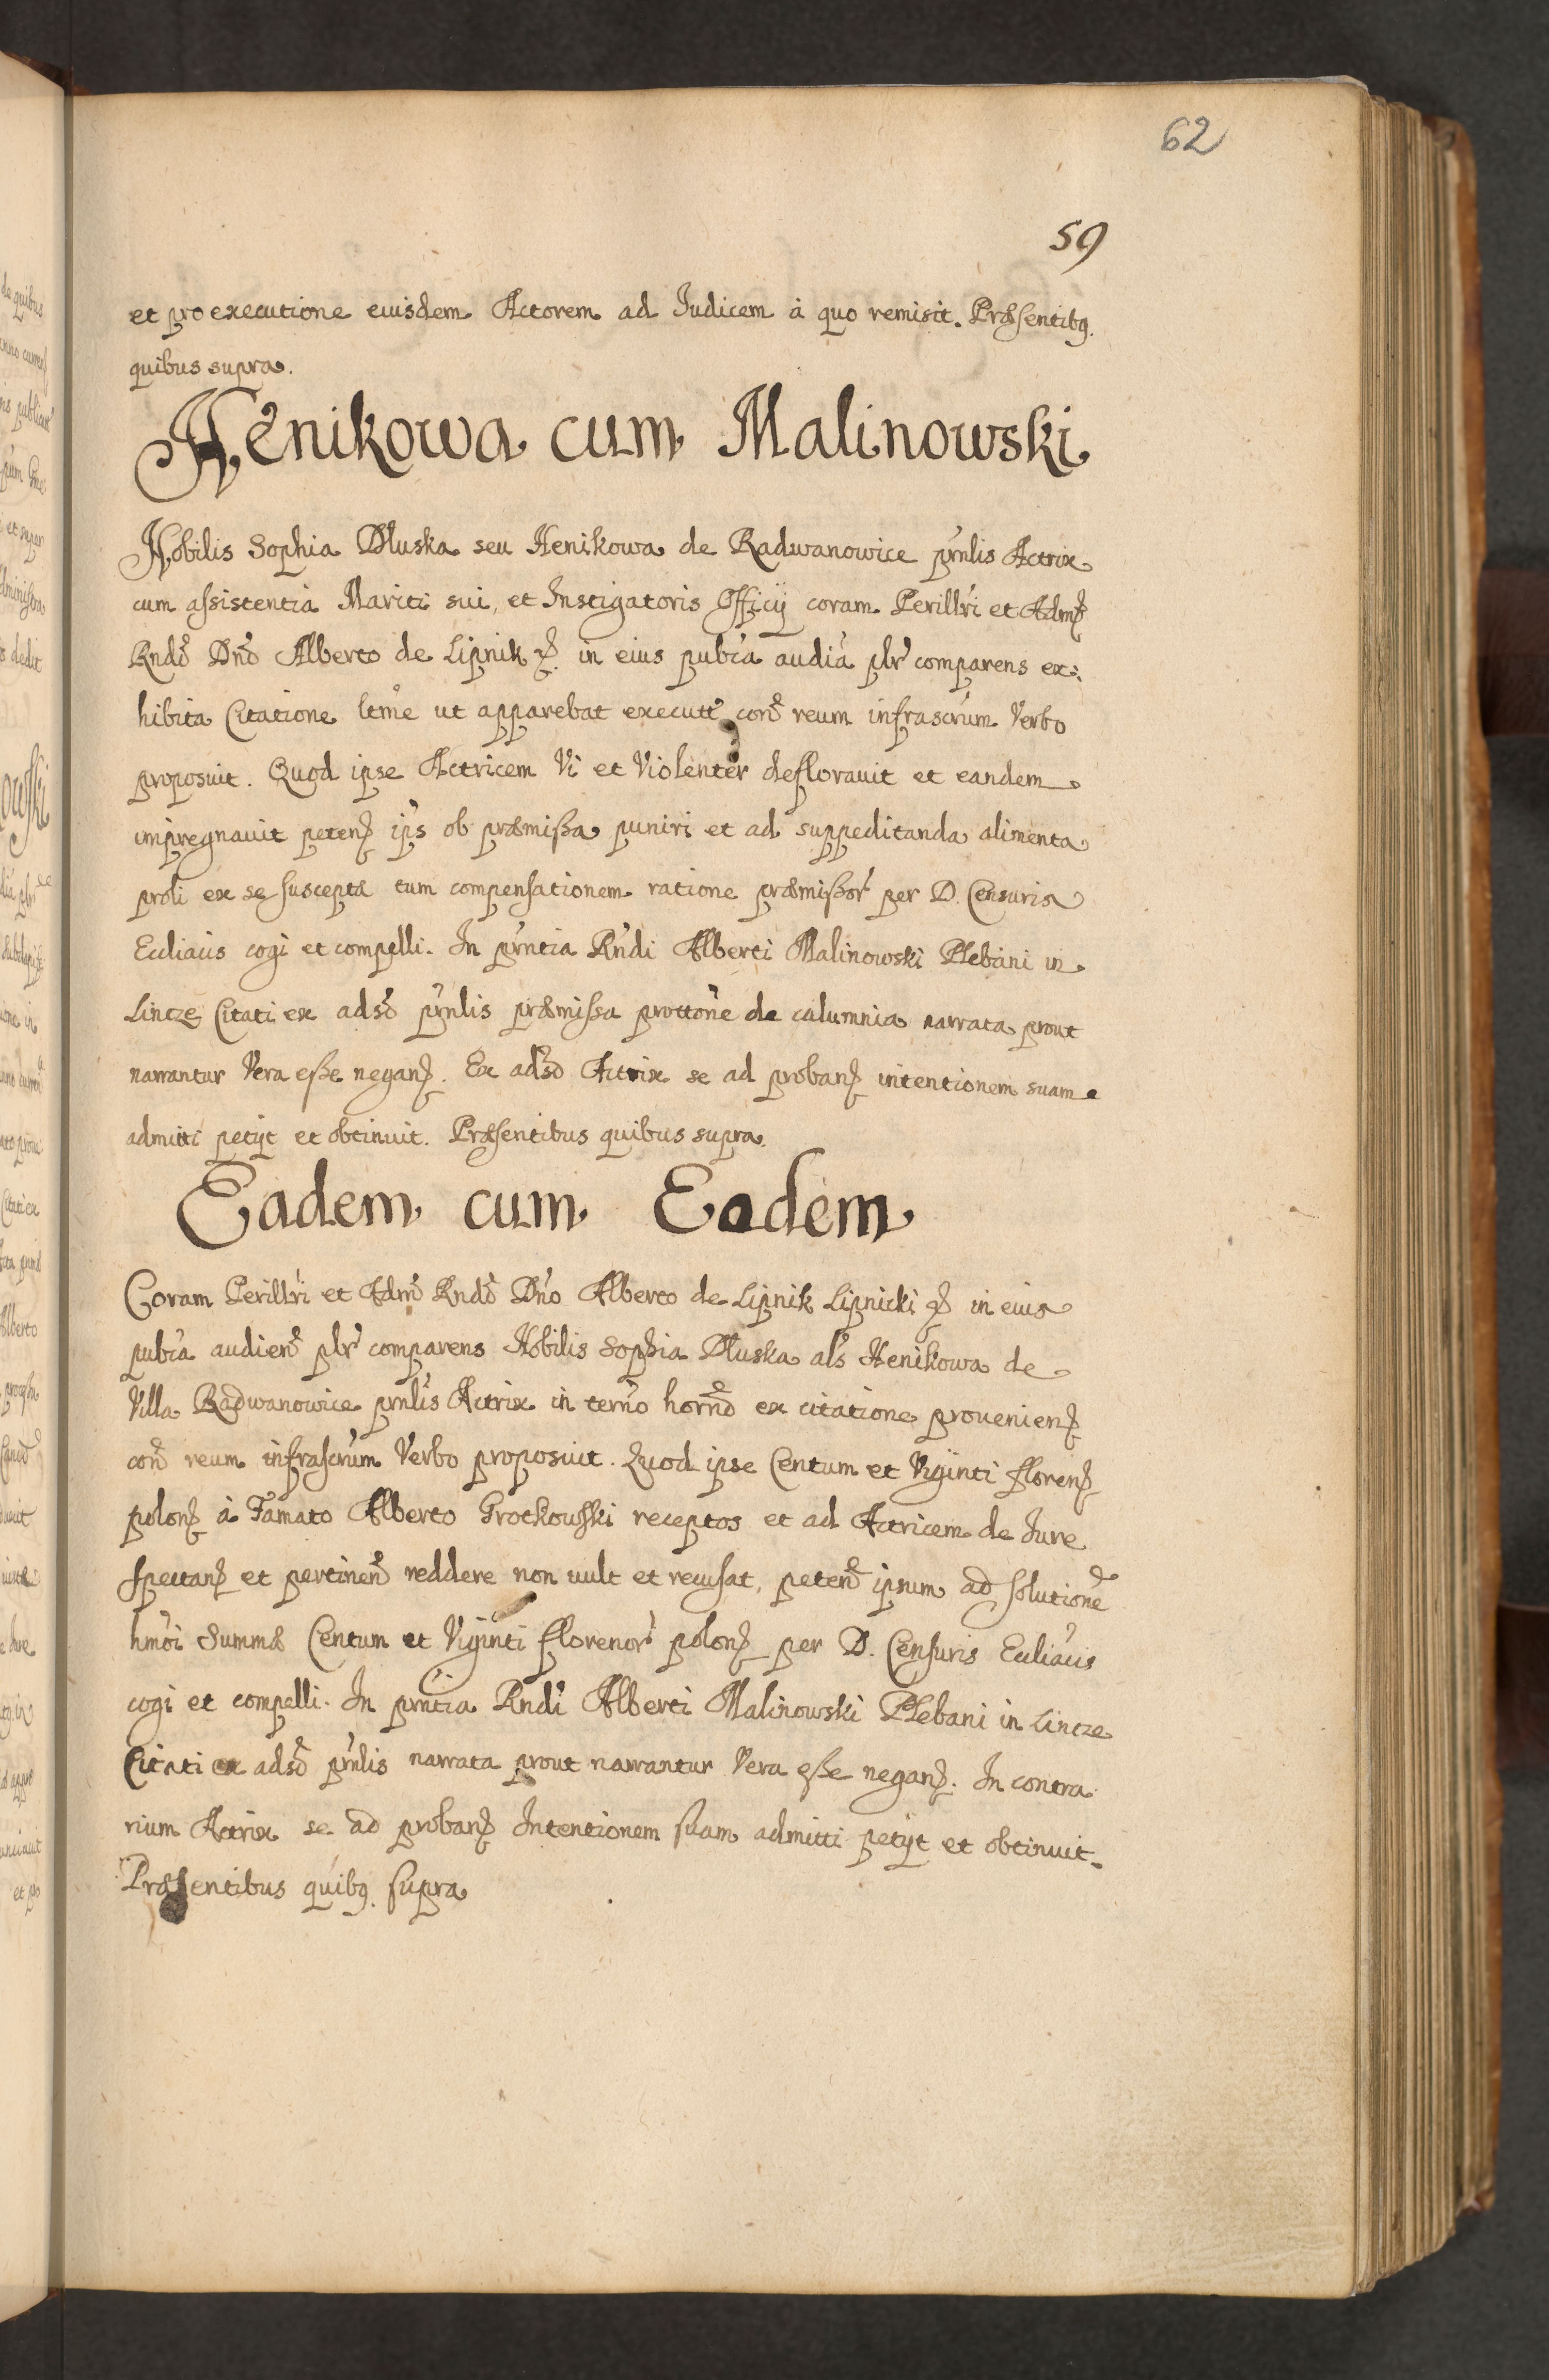 62
59
et pro executione eiusdem Actorem ad Iudicem à quo remisit. Præsentibq.
quibus supra.
Henikowa cum Malinowski
Nobilis Sophia Dłuska seu Henikowa de Radwanowice prnlis Actrix
cum assistentia Mariti sui, et Instigatoris Officij coram Perillri et Adm
Rndo Dno Alberto de Lipnik in eius pubca audia plr comparens ex:
hibita Citatione ltme ut apparebat execut con reum infrascrum Verbo
proposuit. Quod ipse Actricem Vi et Violenter deflorauit et eandem
impregnauit peten ips ob præmißa puniri et ad suppeditanda alimenta
proli ex se susceptæ tum compensationem ratione præmißor per D. Censuris
Eccliacis cogi et compelli. In prntia Rndi Alberti Malinowski Plebani in
Lincze Citati ex adso prnlis præmissa prottone de calumnia narrata prout
narrantur Vera eße negan. Ex adso Actrix se ad proban intentionem suam
admitti petijt et obtinuit. Præsentibus quibus supra.
Eadem cum Eodem
Coram Perillri et Adm Rndo Dno Alberto de Lipnik Lipnicki in eius
pubca audien plr comparens Nobilis Sophia Dłuska als Henikowa de
Villa Radwanowice prnlis Actrix in termo horno ex citatione prouenien
con reum infrascrum Verbo proposuit. Quod ipse Centum et Viginti floren
polon à Famato Alberto Grotkowski receptos et ad Actricem de Iure
spectan et pertinen reddere non uult et recusat, peten ipsum ad solutione
hmoi Summæ Centum et Viginti florenor polon per D. Censuris Eccliacis
cogi et compelli. In prntia Rndi Alberti Malinowski Plebani in Lincze
Citati ex adso prnlis narrata prout narrantur Vera eße negan. In contra
rium Actrix se ad proban Intentionem suam admitti petijt et obtinuit.
Præsentibus quibq. supra